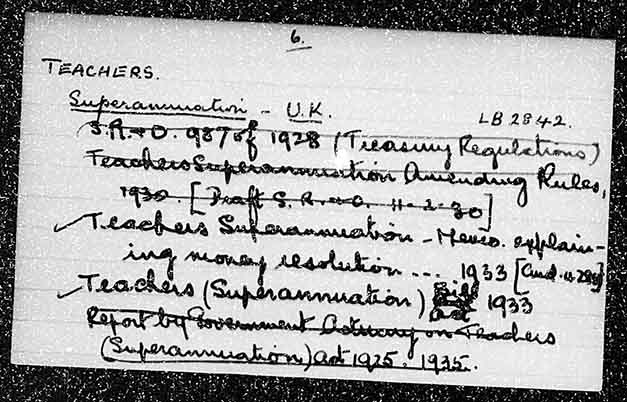 6.
TEACHERS.
Superannuation - U.K.
LB 2842.
S.R. & O. 987 of 1928 (Treasury Regulations)
Teachers Superannuation Amending Rules,
1930. [Draft S. R. & O. 11-2-30]
✓ Teachers Superannuation - Memo. explain-
ing money resolution ... 1933 [Cmd.
✓ Teachers (Superannuation) Bill 1933
Act
Report by Government Actuary on Teachers
(Superannuation) Act 1925. 1935.